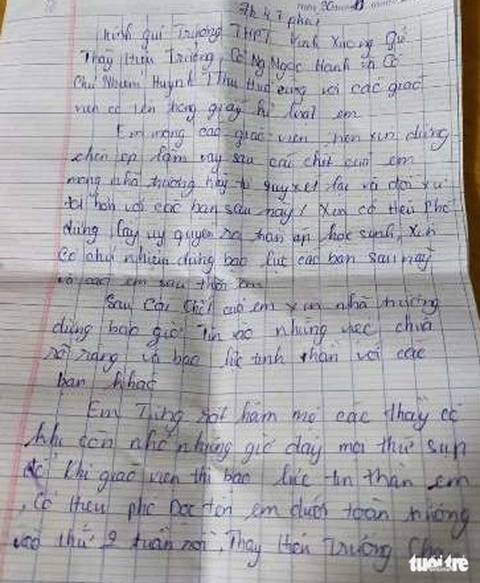 7h 47 phút
Kính gửi Trường THPT Vĩnh Xương gửi
Thầy Hiệu Trưởng, Cô Ng Ngọc Hạnh và Cô
Chủ Nhiệm Huỳnh Thu Huệ cùng với các giáo
viên có tên trong giấy kỉ luật em
Em mong các giáo viên nên xin đừng
chèn ép lắm vậy sau cái chết của em
mong nhà trường hãy tự quyết lại và đối xử
tốt hơn với các bạn sau này! Xin cô Hiệu Phó
đừng lấy uy quyền ra trấn áp học sinh, xin
cô chủ nhiệm đừng bạo lực các bạn sau này
và các em sau thời em
Sau cái chết của em xin nhà trường
đừng bao giờ những việc chưa
rõ ràng và bạo lực tinh thần với các
bạn khác
Em Từng rất hâm mộ các thầy cô
khi còn nhỏ những giờ đây mọi thứ sụp
đổ khi giáo viên thì bạo lực tin thần em
, Cô Hiệu phó Đọc tên em dưới toàn trường
vào thứ 2 tuần rồi, Thầy Hiệu Trưởng
tuổi trẻ